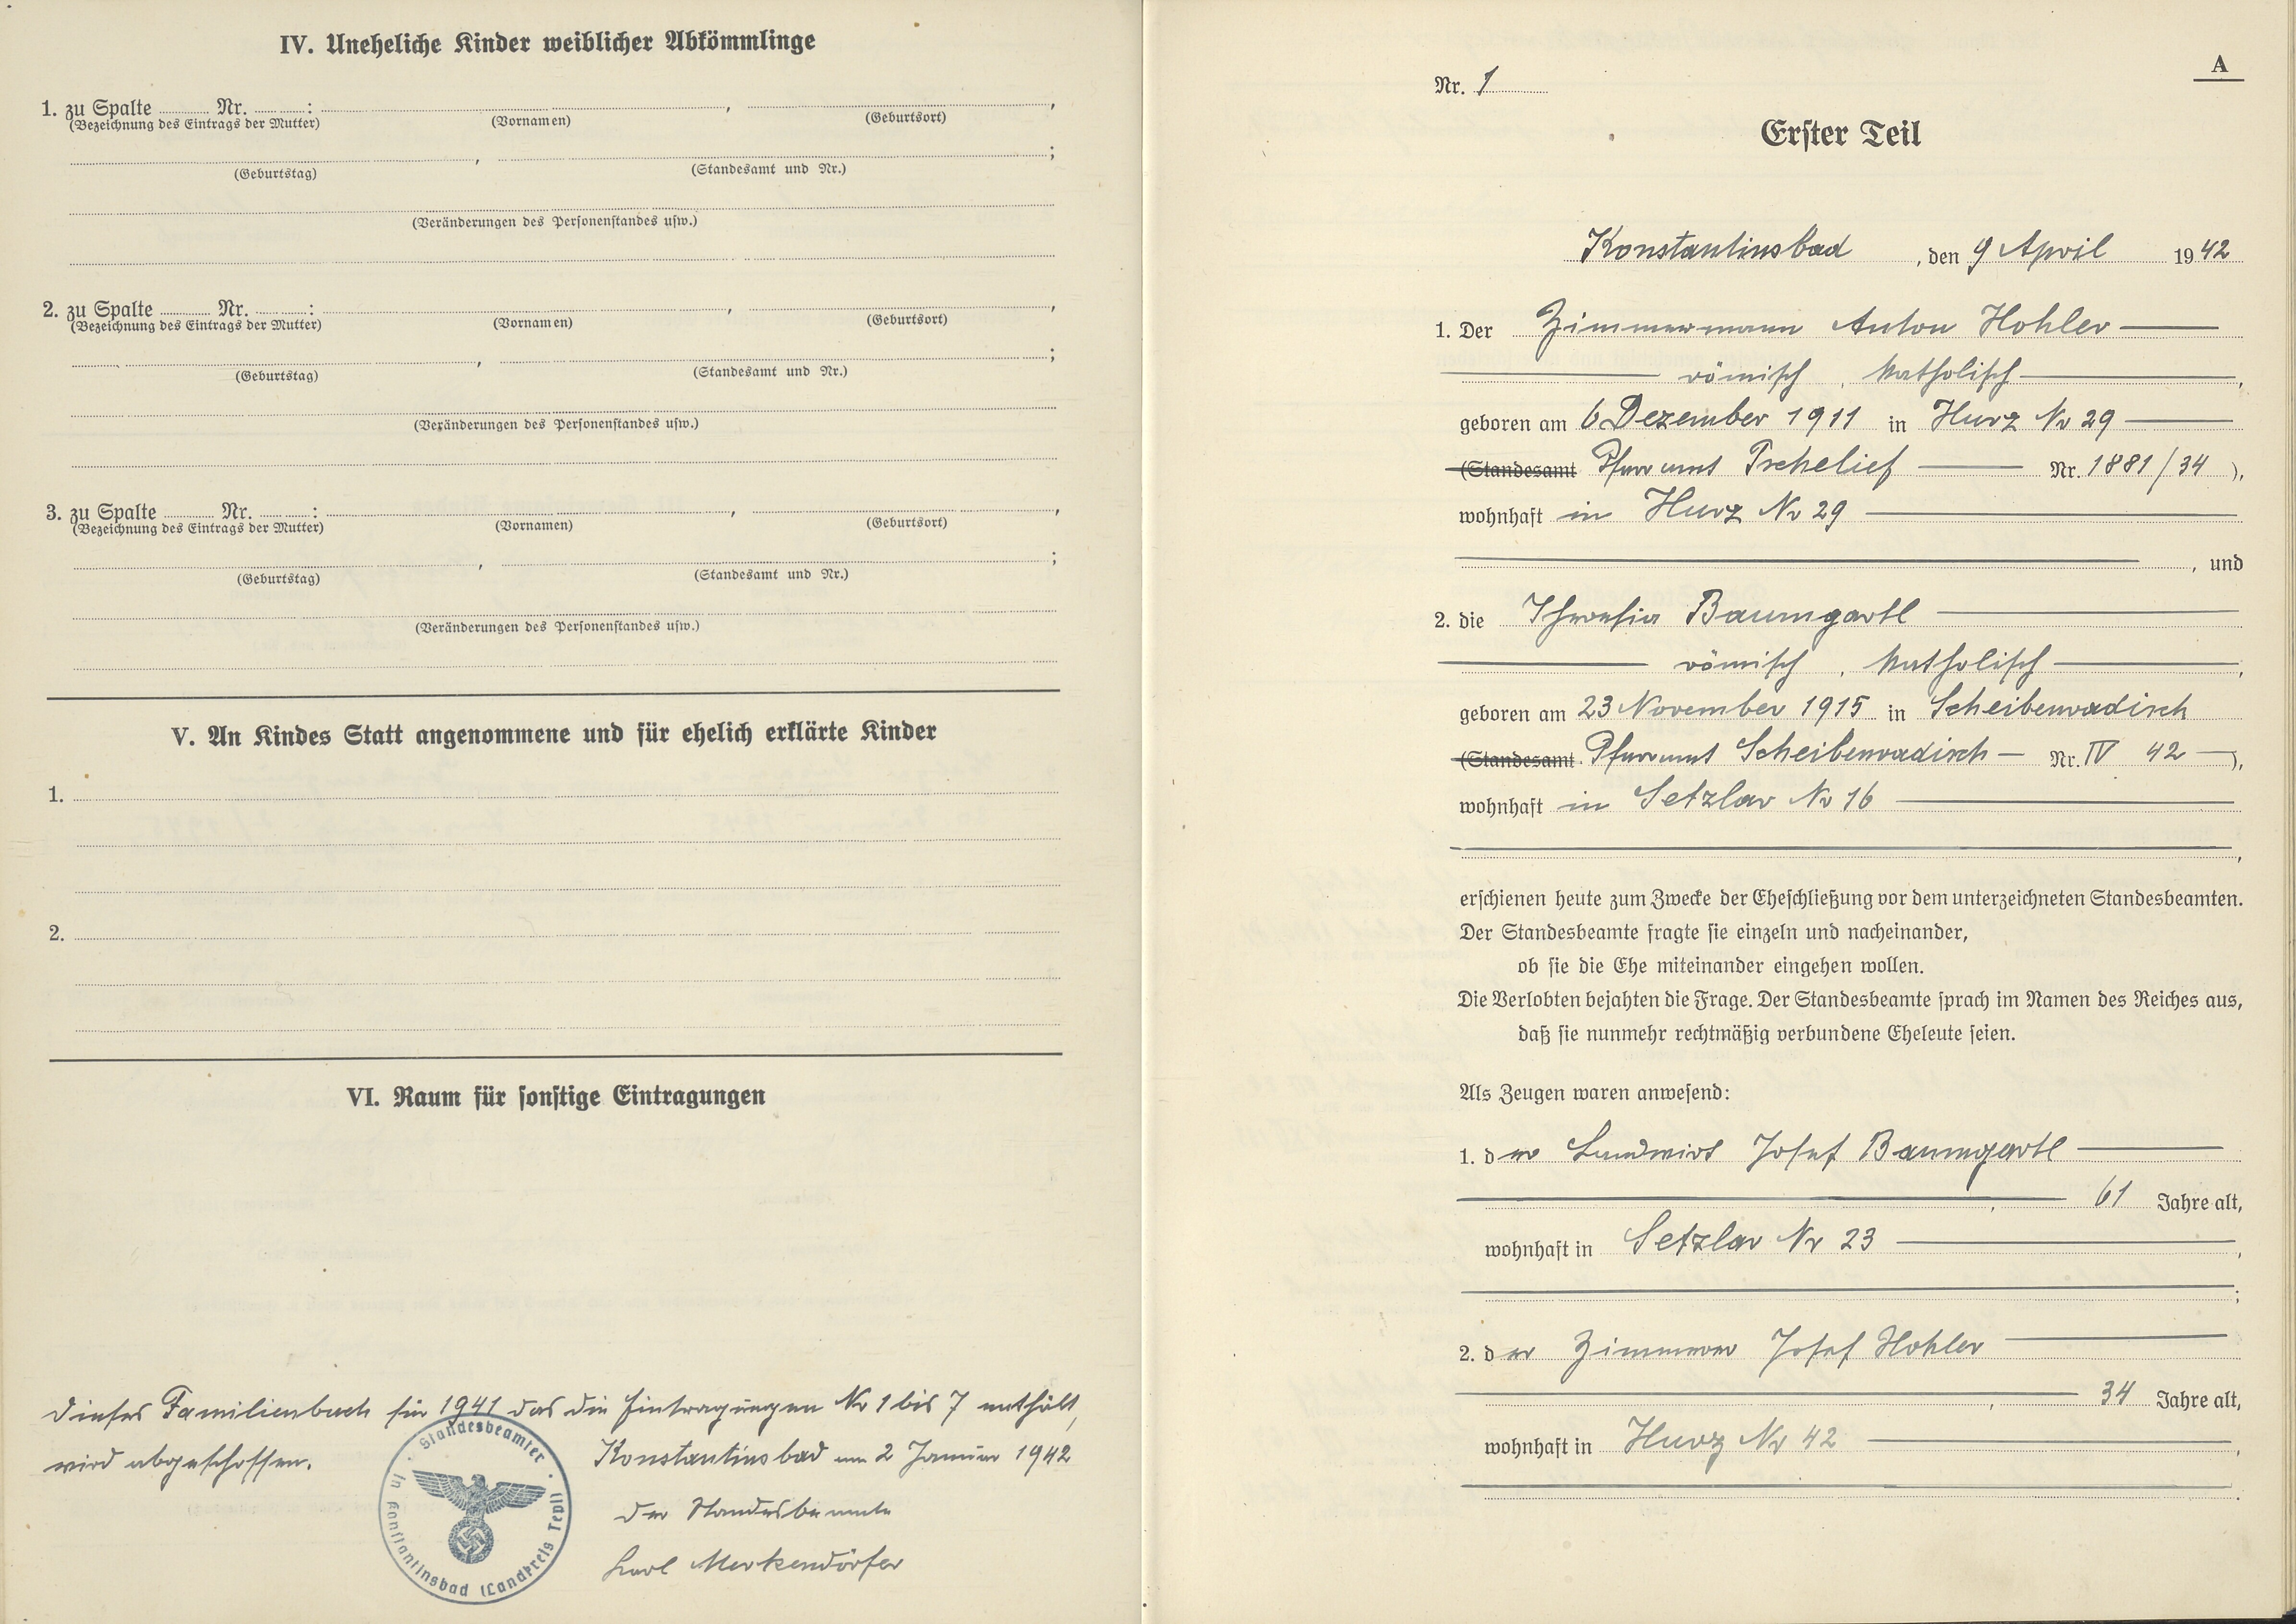 IV. Uneheliche Kinder weiblicher Abkömmlinge
1. zu Spalte ........ Nr. ........ : ........ , ........ ,
(Bezeichnung des Eintrags der Mutter) (Vornamen) (Geburtsort)
........ , ........ ;
(Geburtstag) (Standesamt und Nr.)
(Veränderungen des Personenstandes usw.)
2. zu Spalte ........ Nr. ........ : ........ , ........ ,
(Bezeichnung des Eintrags der Mutter) (Vornamen) (Geburtsort)
........ , ........ ;
(Geburtstag) (Standesamt und Nr.)
(Veränderungen des Personenstandes usw.)
3. zu Spalte ........ Nr. ........ : ........ , ........ ,
(Bezeichnung des Eintrags der Mutter) (Vornamen) (Geburtsort)
........ , ........ ;
(Geburtstag) (Standesamt und Nr.)
(Veränderungen des Personenstandes usw.)
V. An Kindes Statt angenommene und für ehelich erklärte Kinder
1.
2.
VI. Raum für sonstige Eintragungen
Dieses Familienbuch für 1941 das die Eintragungen Nr 1 bis 7 enthält,
wird abgeschossen. Konstantinsbad am 2 Januar 1942
Der Standesbeamte
Karl Merkendörfer
Standesbeamter · in Konstantinsbad (Landkreis Tepl) ·
A
Nr. 1
Erster Teil
Konstantinsbad , den 9 April 1942
1. Der Zimmermann Anton Hohler
römisch katholisch ,
geboren am 6 Dezember 1911 in Hurz Nr 29
(Standesamt Pfarramt Tschelief Nr. 1881/34 ),
wohnhaft in Hurz Nr 29
, und
2. die Theresia Baumgartl
römisch katholisch ,
geboren am 23 November 1915 in Scheibenradisch
(Standesamt Pfarramt Scheibenradisch Nr. IV 42 ),
wohnhaft in Setzlar Nr 16
,
erschienen heute zum Zwecke der Eheschließung vor dem unterzeichneten Standesbeamten.
Der Standesbeamte fragte sie einzeln und nacheinander,
ob sie die Ehe miteinander eingehen wollen.
Die Verlobten bejahten die Frage. Der Standesbeamte sprach im Namen des Reiches aus,
daß sie nunmehr rechtmäßig verbundene Eheleute seien.
Als Zeugen waren anwesend:
1. der Landwirt Josef Baumgartl
, 61 Jahre alt,
wohnhaft in Setzlar Nr 23 ,
;
2. der Zimmerer Josef Hohler
, 34 Jahre alt,
wohnhaft in Hurz Nr 42 ,
.